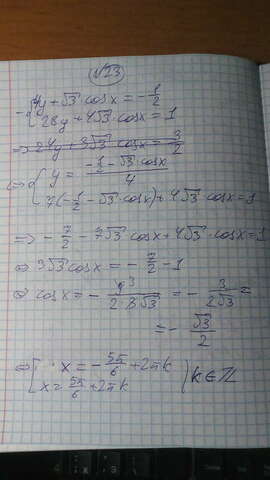 №13
{4y + √3 · cosx = -1/2
{28y + 4√3 · cosx = 1
⇔ {y = (-1/2 - √3 cosx)/4
{7(-1/2 - √3 · cosx) + 4√3 cosx = 1
⇔ -7/2 - 7√3 cosx + 4√3 · cosx = 1
⇔ 3√3 cosx = -7/2 - 1
⇔ cosx = -9/(2·3√3) = -3/(2√3) =
= -√3/2
⇔ [x = -5π/6 + 2πk
[x = 5π/6 + 2πk ) k ∈ ℤ